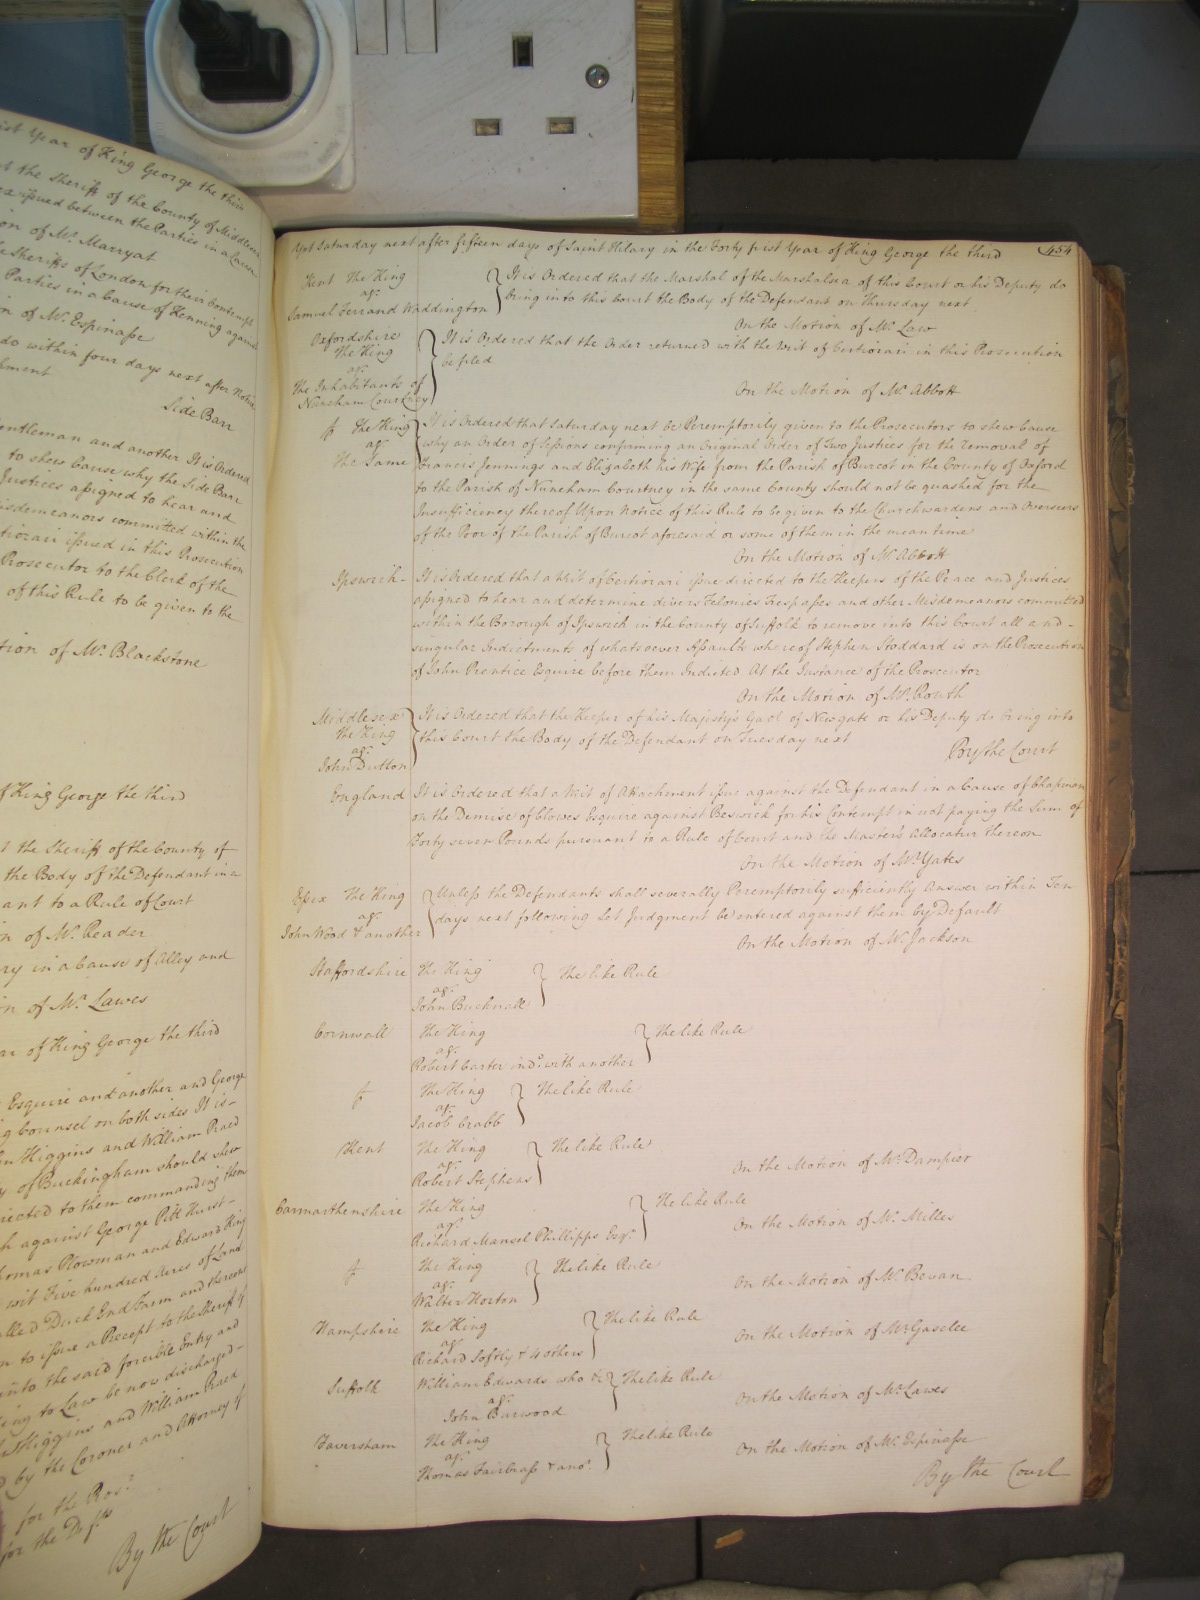 ist Year of King George the third
t the Sheriff of the County of Middlesex
issued between the Parties in a Cause
on of Mr. Marryat
Sheriffs of London for their Contempt
Parties in a Cause of Kenning against
n of Mr. Espinasse
do within four days next after Notice
Side Barr
entleman and another It is Ordered
to shew Cause why the Side Barr
Justices assigned to hear and
isdemeanors committed within the
tiorari issued in this Prosecution
Prosecutor to the Clerk of the
of this Rule to be given to the
tion of Mr. Blackstone
f King George the third
t the Sheriff of the County of
the Body of the Defendant in a
ant to a Rule of Court
n of Mr. Reader
ry in a Cause of Alley and
n of Mr. Lawes
ar of King George the third
Esquire and another and George
g Counsel on both sides It is
n Higgins and William Praed
y of Buckingham should shew
rected to them commanding them
h against George Pitt Hurst
homas Plowman and Edward King
wit Five hundred Acres of Land
alled Duck End Farm and thereon
n to issue a Precept to the Sheriff of
into the said forcible Entry and
ing to Law be now discharged
Higgins and William Praed
d by the Coroner and Attorney of
for the Pros.
for the Defts
By the Court
Yet Saturday next after fifteen days of Saint Hilary in the Forty first Year of King George the third 454
Kent The King
agt.
Samuel Ferrand Waddington
It is Ordered that the Marshal of the Marshalsea of this Court or his Deputy do
bring into this Court the Body of the Defendant on Thursday next
On the Motion of Mr. Law
Oxfordshire
The King
agt.
The Inhabitants of
Nuneham Courtney
It is Ordered that the Order returned with the Writ of Certiorari in this Prosecution
be filed
On the Motion of Mr. Abbott
The King
agt.
The Same
It is Ordered that Saturday next be Peremptorily given to the Prosecutors to shew Cause
why an Order of Sessions confirming an Original Order of Two Justices for the Removal of
Francis Jennings and Elizabeth his Wife from the Parish of Burcot in the County of Oxford
to the Parish of Nuneham Courtney in the same County should not be quashed for the
Insufficiency thereof Upon Notice of this Rule to be given to the Churchwardens and Overseers
of the Poor of the Parish of Burcot aforesaid or some of them in the mean time
On the Motion of Mr. Abbott
Ipswich -
It is Ordered that a Writ of Certiorari issue directed to the Keepers of the Peace and Justices
assigned to hear and determine divers Felonies Trespasses and other Misdemeanors committed
within the Borough of Ipswich in the County of Suffolk to remove into this Court all and -
singular Indictments of whatsoever Assaults whereof Stephen Stoddard is on the Prosecution
of John Prentice Esquire before them Indicted At the Instance of the Prosecutor
On the Motion of Mr. Routh
Middlesex
The King
agt.
John Dutton
It is Ordered that the Keeper of his Majesty's Gaol of Newgate or his Deputy do bring into
this Court the Body of the Defendant on Tuesday next
By the Court
England
It is Ordered that a Writ of Attachment issue against the Defendant in a Cause of Chapman
on the Demise of Clowes Esquire against Beswick for his Contempt in not paying the Sum of
Forty seven Pounds pursuant to a Rule of Court and the Master's Allocatur thereon
On the Motion of Mr. Yates
Essex The King
agt.
John Wood & another
Unless the Defendants shall severally Peremptorily sufficiently Answer within Ten
days next following Let Judgment be entered against them by Default
On the Motion of Mr. Jackson
Staffordshire The King
agt.
John Bucknall
The like Rule
Cornwall The King
agt.
Robert Carter ind. with another
The like Rule
The King
agt.
Jacob Crabb
The like Rule
Kent The King
agt.
Robert Stephens
The like Rule
On the Motion of Mr. Dampier
Carmarthenshire The King
agt.
Richard Mansel Phillipps Esqr.
The like Rule
On the Motion of Mr. Milles
The King
agt.
Walter Horton
The like Rule
On the Motion of Mr. Bevan
Hampshire The King
agt.
Richard Softly & 4 others
The like Rule
On the Motion of Mr. Gaselee
Suffolk William Edwards who &c
agt.
John Barwood
The like Rule
On the Motion of Mr. Lawes
Faversham The King
agt.
Thomas Fairbrass & anor.
The like Rule
On the Motion of Mr. Espinasse
By the Court